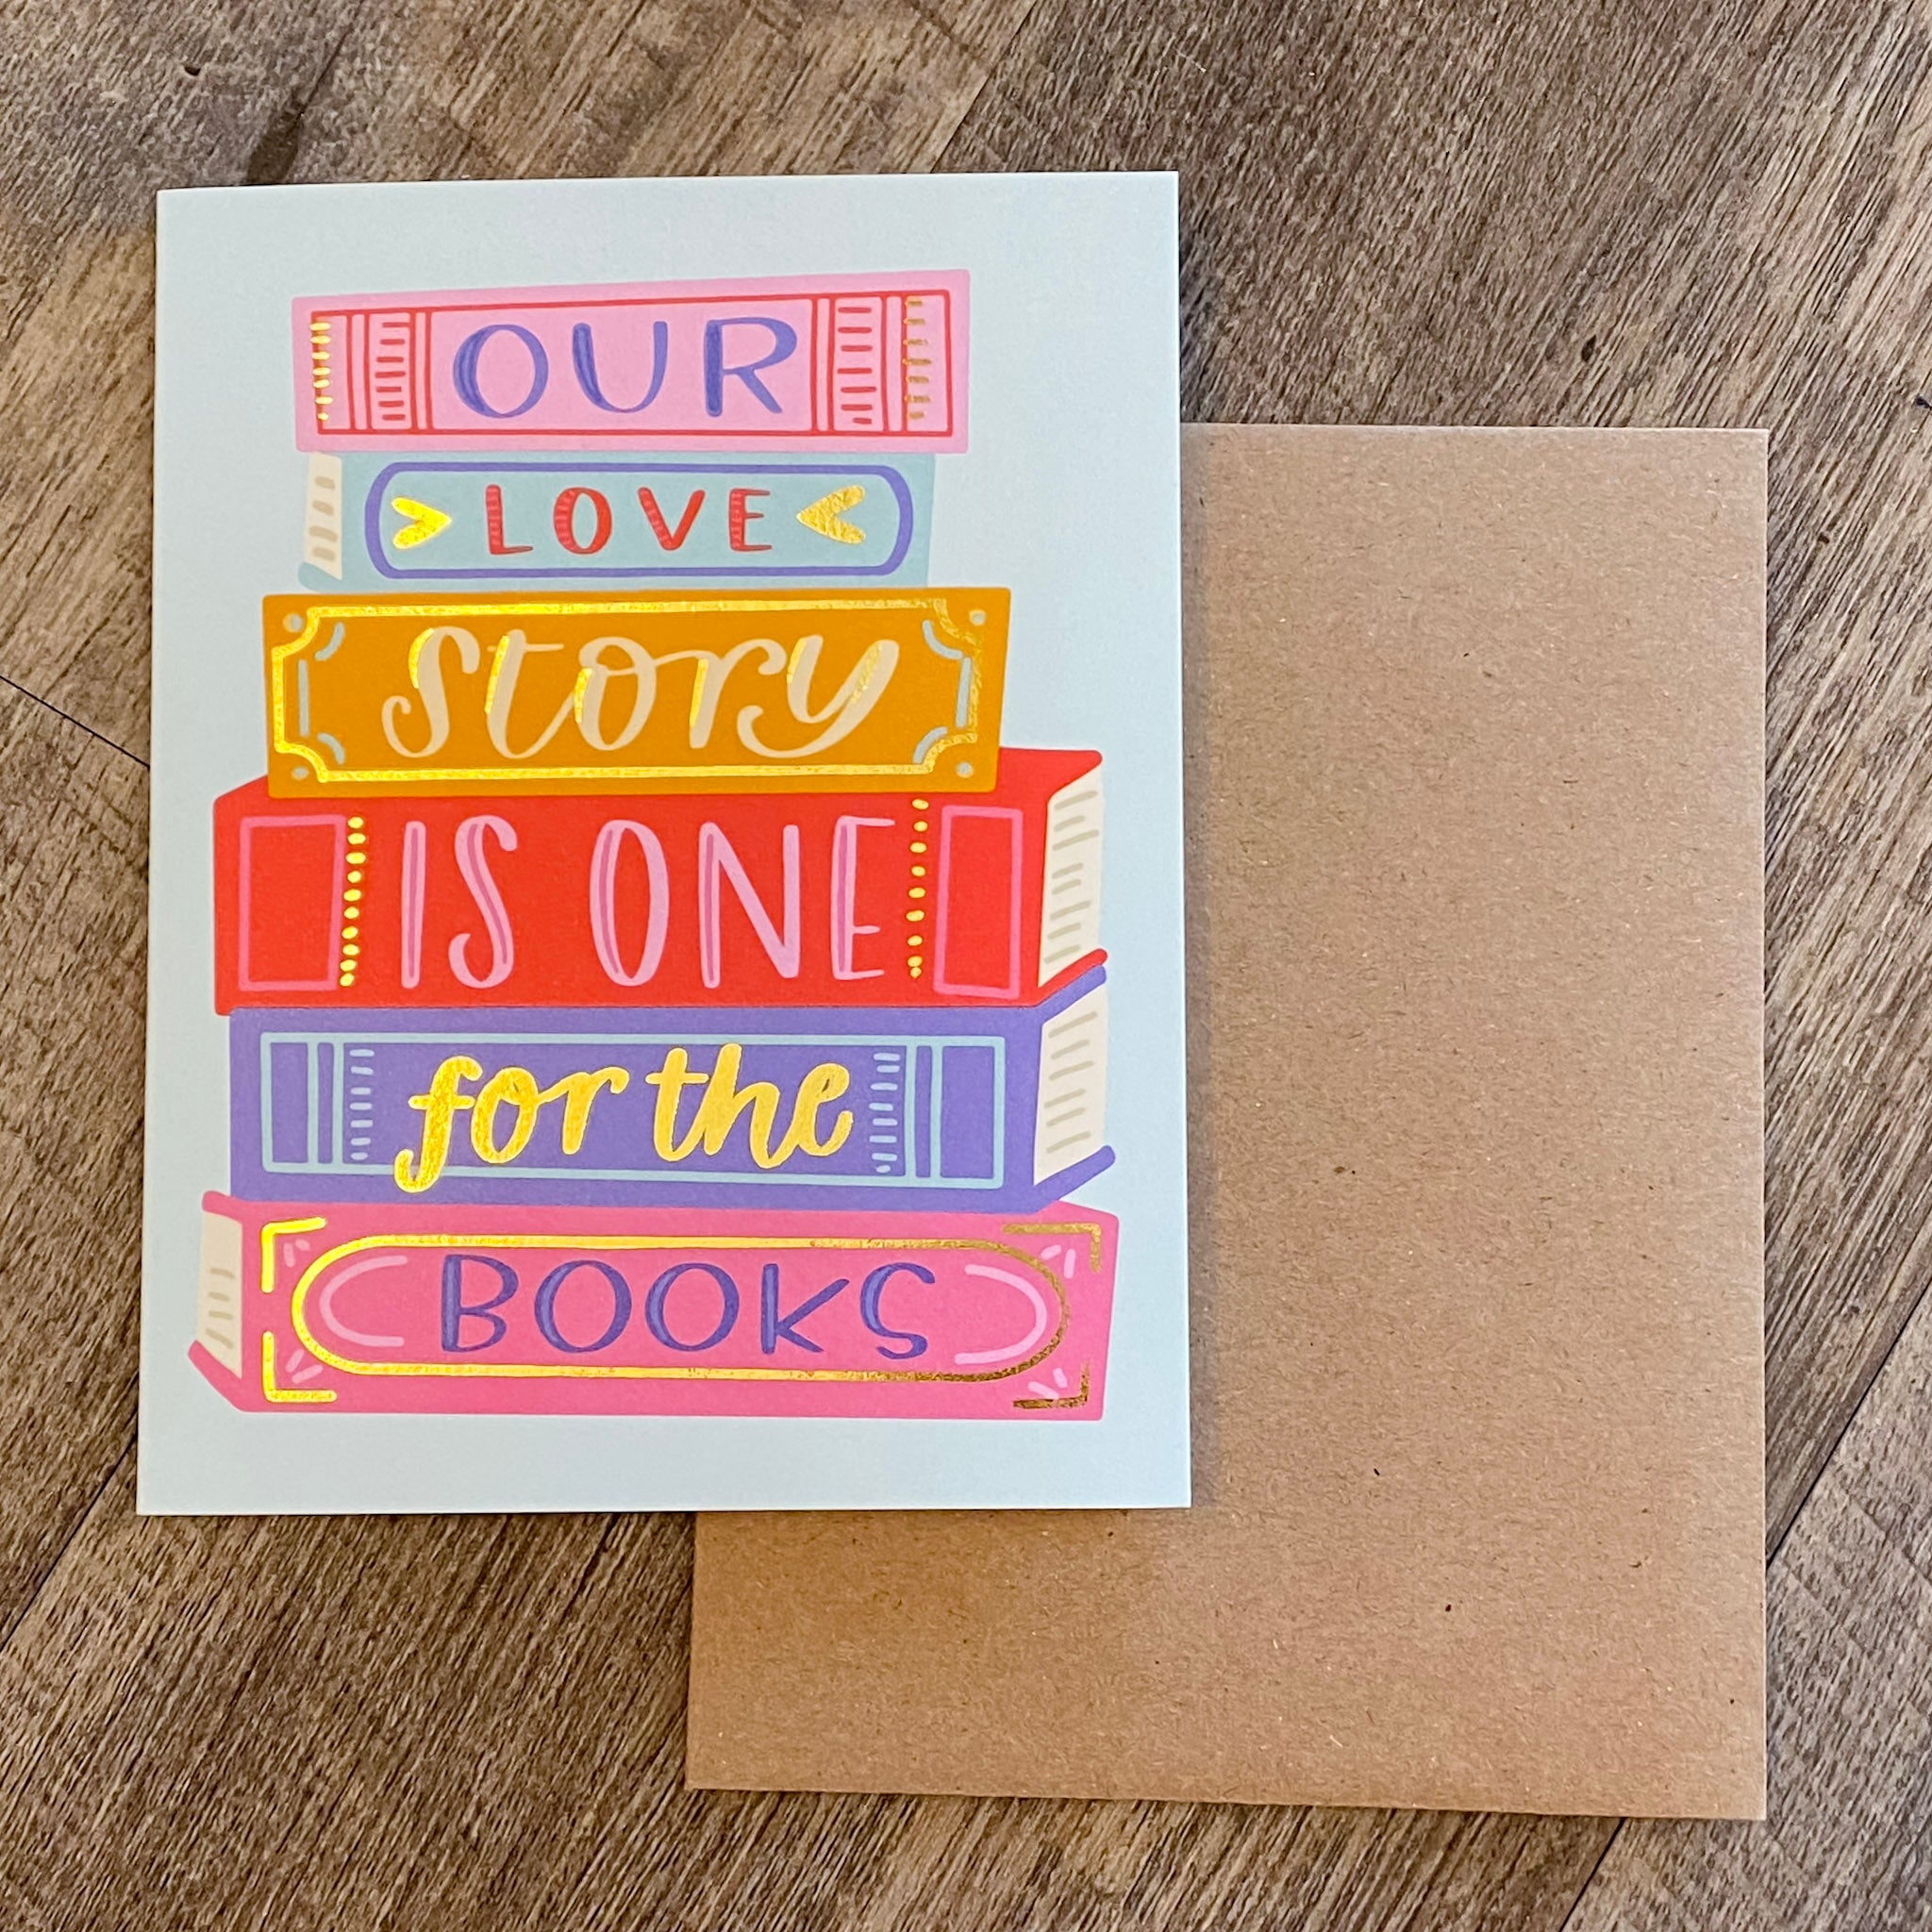 OUR
LOVE
story
IS ONE
for the
BOOKS